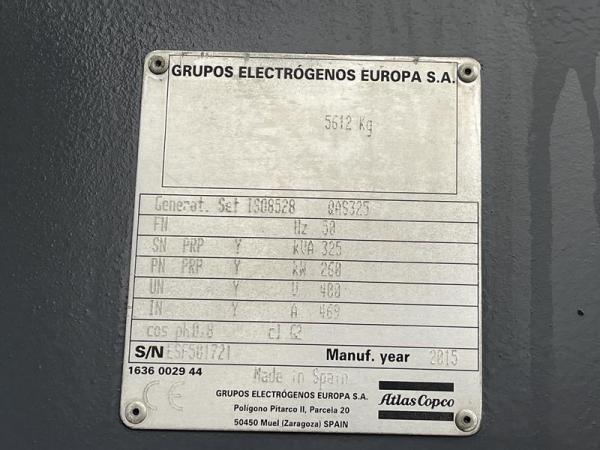 GRUPOS ELECTRÓGENOS EUROPA S.A.
5612 Kg
Generat. Set ISO8528 QAS325
FN Hz 50
SN PRP Y kVA 325
PN PRP Y kW 260
UN Y V 400
IN Y A 469
cos ph0.8 cl G2
S/N ESF501721 Manuf. year 2015
1636 0029 44 Made in Spain
CE GRUPOS ELECTRÓGENOS EUROPA S.A. Atlas Copco
Polígono Pitarco II, Parcela 20
50450 Muel (Zaragoza) SPAIN